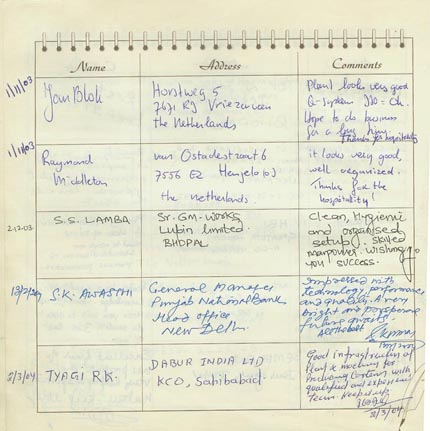 Name Address Comments
1/11/03 Jan Blok
Horstweg 5
7671 RJ Vriezenveen
the Netherlands
Plant looks very good
Q-system ISO = Oh.
Hope to do business
for a long time.
Thanks for hospitality
1/11/03 Raymond
Middleton
van Ostadestraat 6
7556 EZ Hengelo (o)
the netherlands
it looks very good,
well organized.
Thanks for the
hospitality!
2.12.03 S.S. LAMBA
Sr. GM-WORKS
Lupin limited.
BHOPAL
Clean, Hygienic
and organised
setup. skilled
manpower. wishing
you success.
S.K. AWASTHI
General Manager
Punjab National Bank
Head office
New Delhi.
Impressed with
technology, performance
and quality. A very
bright and prosperous
future awaits.
All the best
2/3/04 TYAGI R.K.
DABUR INDIA LTD
KCO, Sahibabad
Good infrastructure of
Plant & machinery for
Producing Cartons with
qualified and experienced
Team. Keep it up.
2/3/04